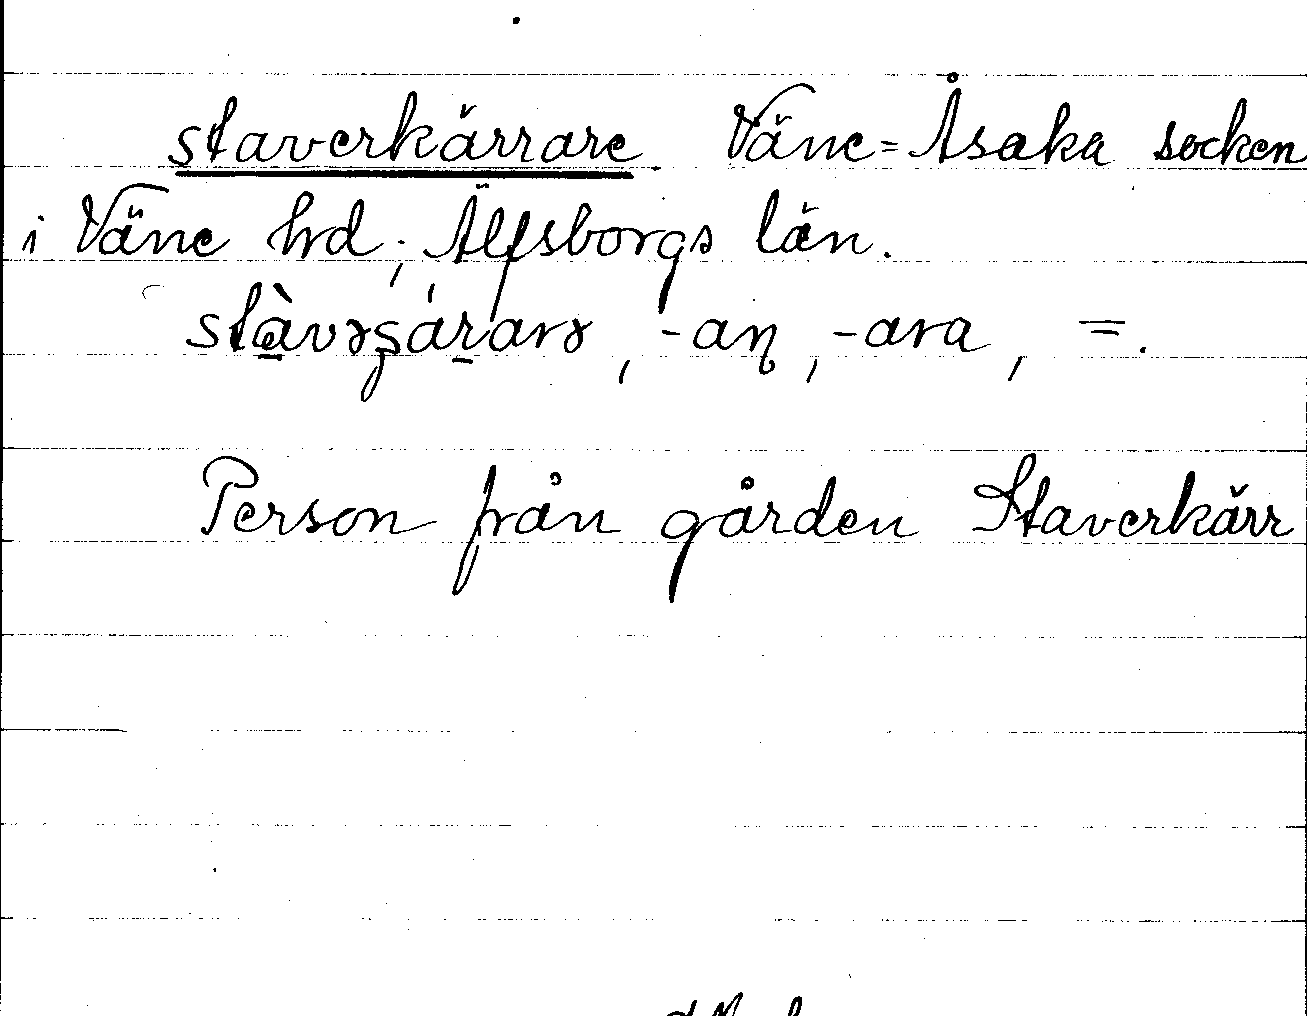 staverkärrare Väne=Åsaka socken
i Väne hrd, Älfsborgs län.
stàvərʂárarə, -aɳ, -ara, =.
Person från gården Staverkärr